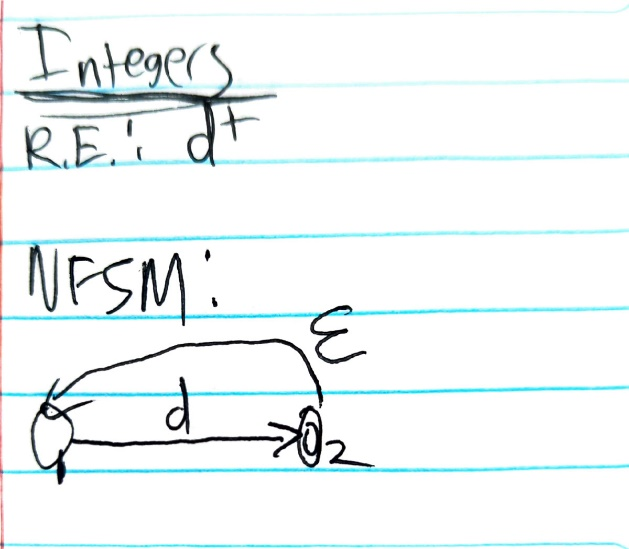 Integers
R.E.: d+
NFSM:
ε
d
1
2